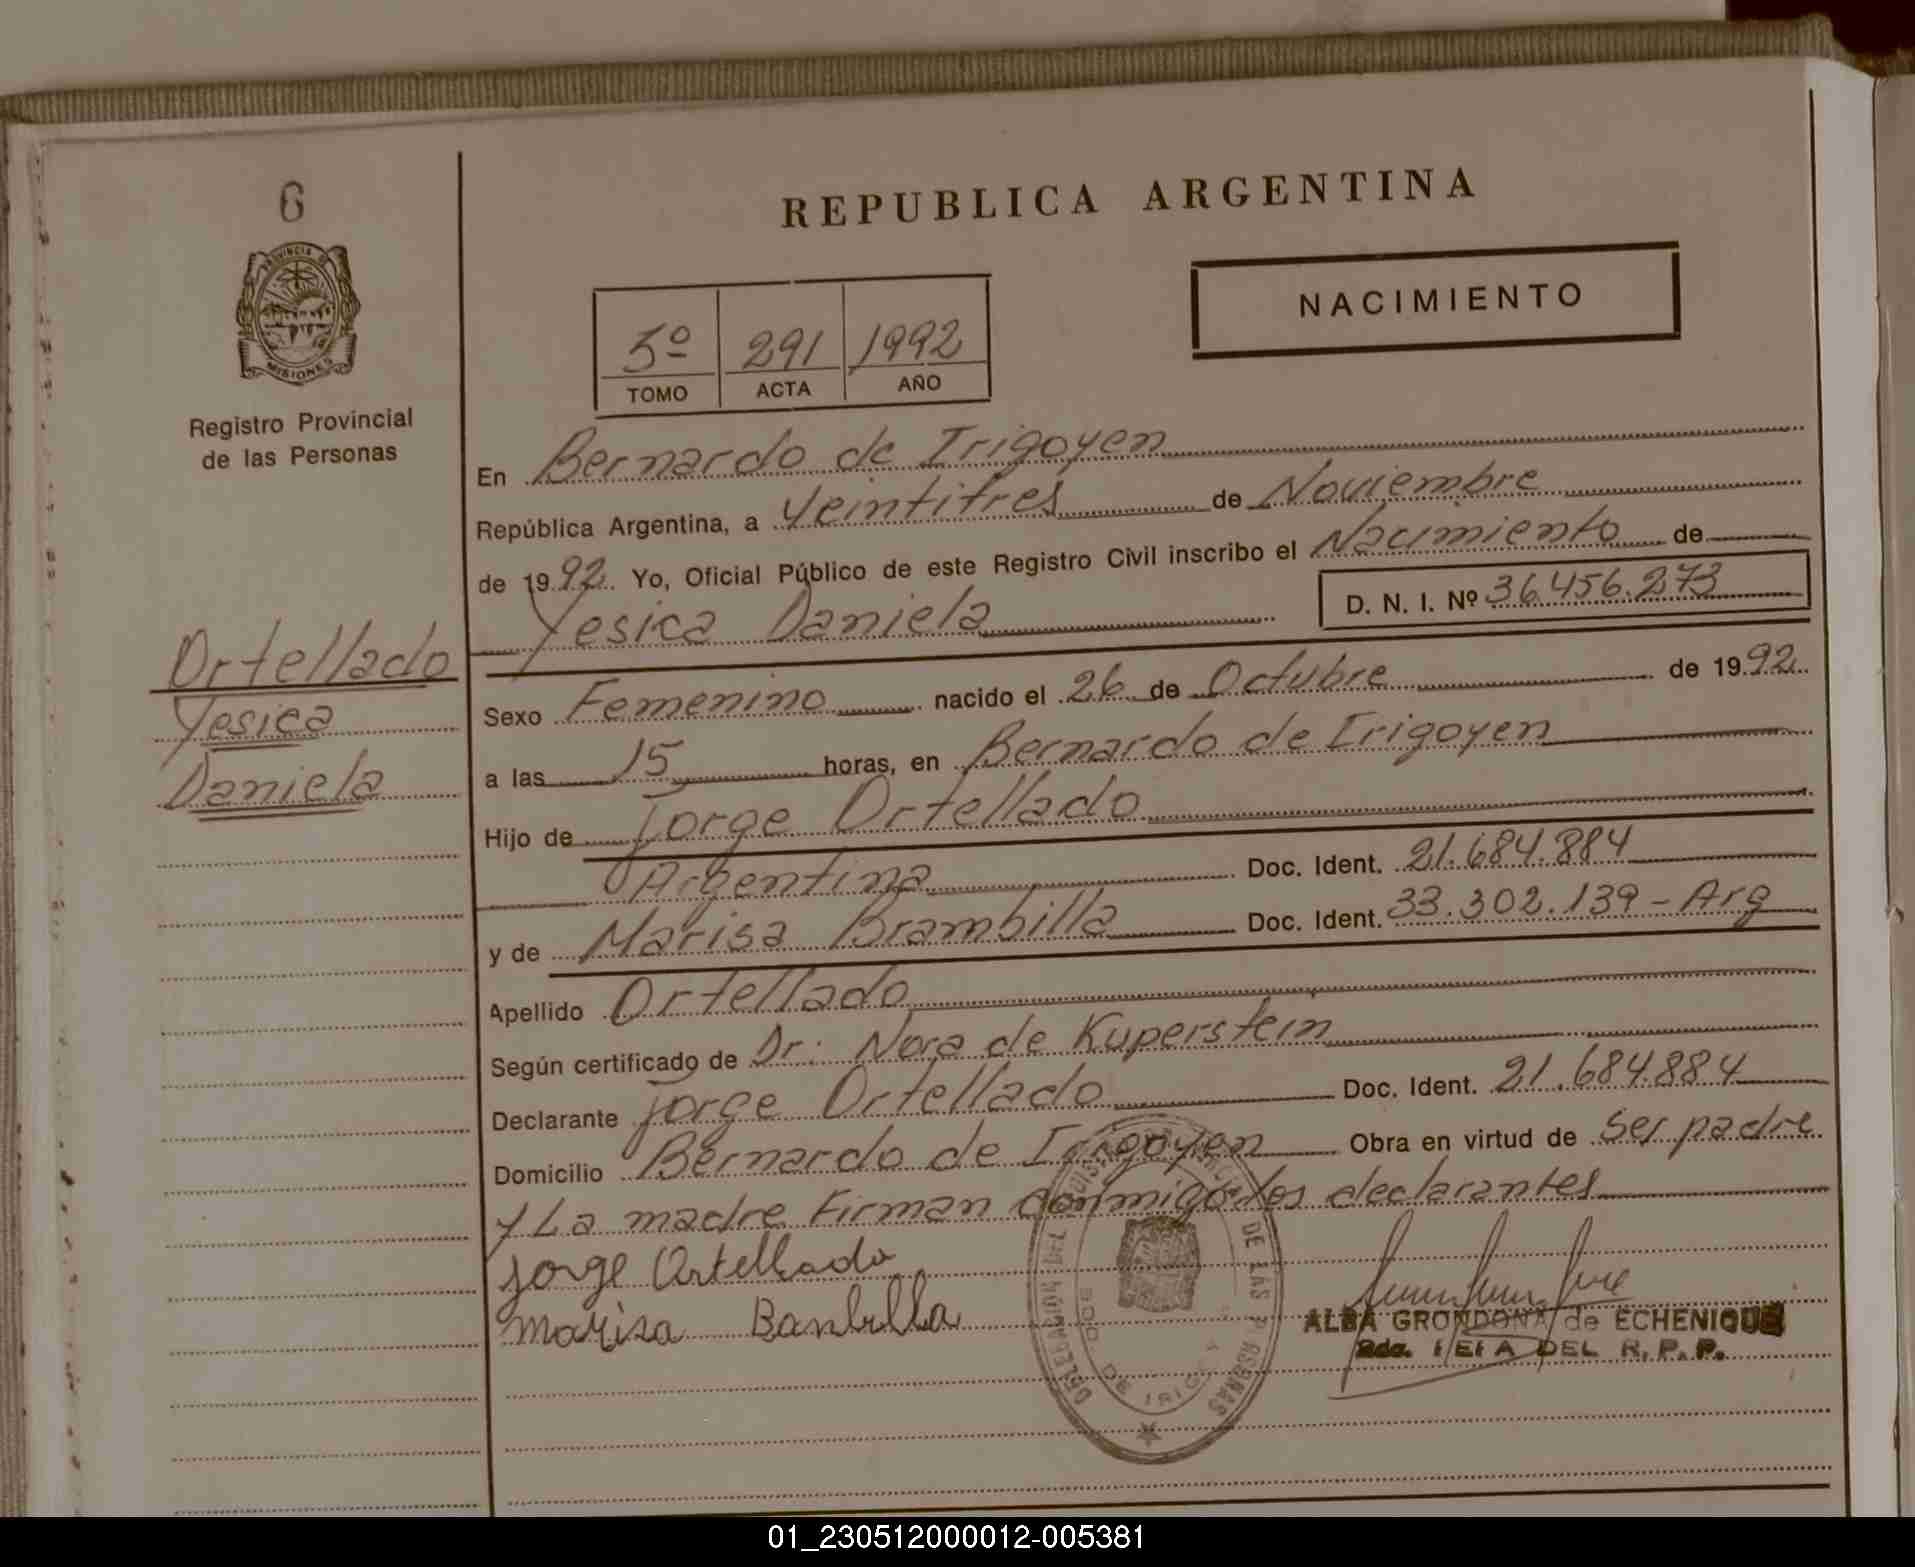 6
PROVINCIA DE
MISIONES
Registro Provincial
de las Personas
Ortellado
Yesica
Daniela
REPUBLICA ARGENTINA
NACIMIENTO
5º 291 1992
TOMO ACTA AÑO
En Bernardo de Irigoyen
República Argentina, a Veintitres de Noviembre
de 1992. Yo, Oficial Público de este Registro Civil inscribo el Nacimiento de
Yesica Daniela D. N. I. Nº 36.456.273
Sexo Femenino nacido el 26 de Octubre de 1992
a las 15 horas, en Bernardo de Irigoyen
Hijo de Jorge Ortellado
Argentina Doc. Ident. 21.684.884
y de Marisa Brambilla Doc. Ident. 33.302.139 - Arg
Apellido Ortellado
Según certificado de Dr: Nora de Kuperstein
Declarante Jorge Ortellado Doc. Ident. 21.684.884
Domicilio Bernardo de Irigoyen Obra en virtud de ser padre
y La madre Firman conmigo los declarantes
Jorge Ortellado
Marisa Banbilla
DE LAS PERSONAS
BDO. DE IRIGOYEN
ALBA GRONDONA de ECHENIQUE
2da. JEFA DEL R. P. P.
01_230512000012-005381